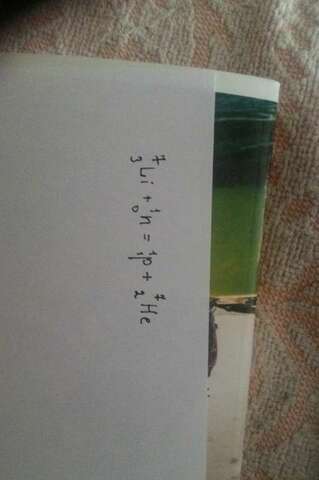 ⁷₃Li + ¹₀n = ¹₁p + ⁷₂He